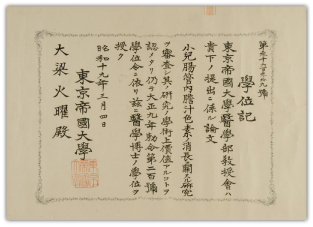 學位記
東京帝國大學醫學部教授會ハ
貴下ノ提出ニ係ル論文
小兒腸管内膽汁色素ノ消長ニ關スル研究
ヲ審査シ其ノ研究ハ學術上價値アルコトヲ
認メタリ仍テ大正九年勅令第二百號
學位令ニ依リ茲ニ醫學博士ノ學位ヲ
授ク
昭和十九年三月四日
東京帝國大學
大梁火曜殿